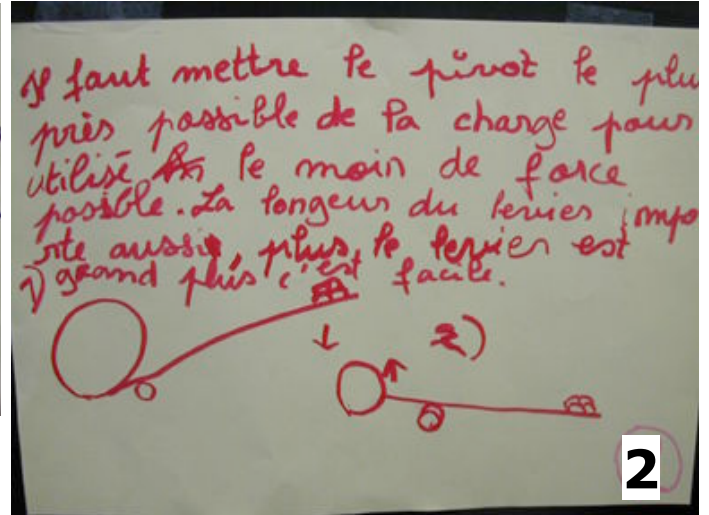 Il faut mettre le pivot le plu
près possible de la charge pour
utilisé le moin de force
posible. La longeur du levier impo
rte aussi, plus le levier est
grand plus c'est facile.
1)
2)
2